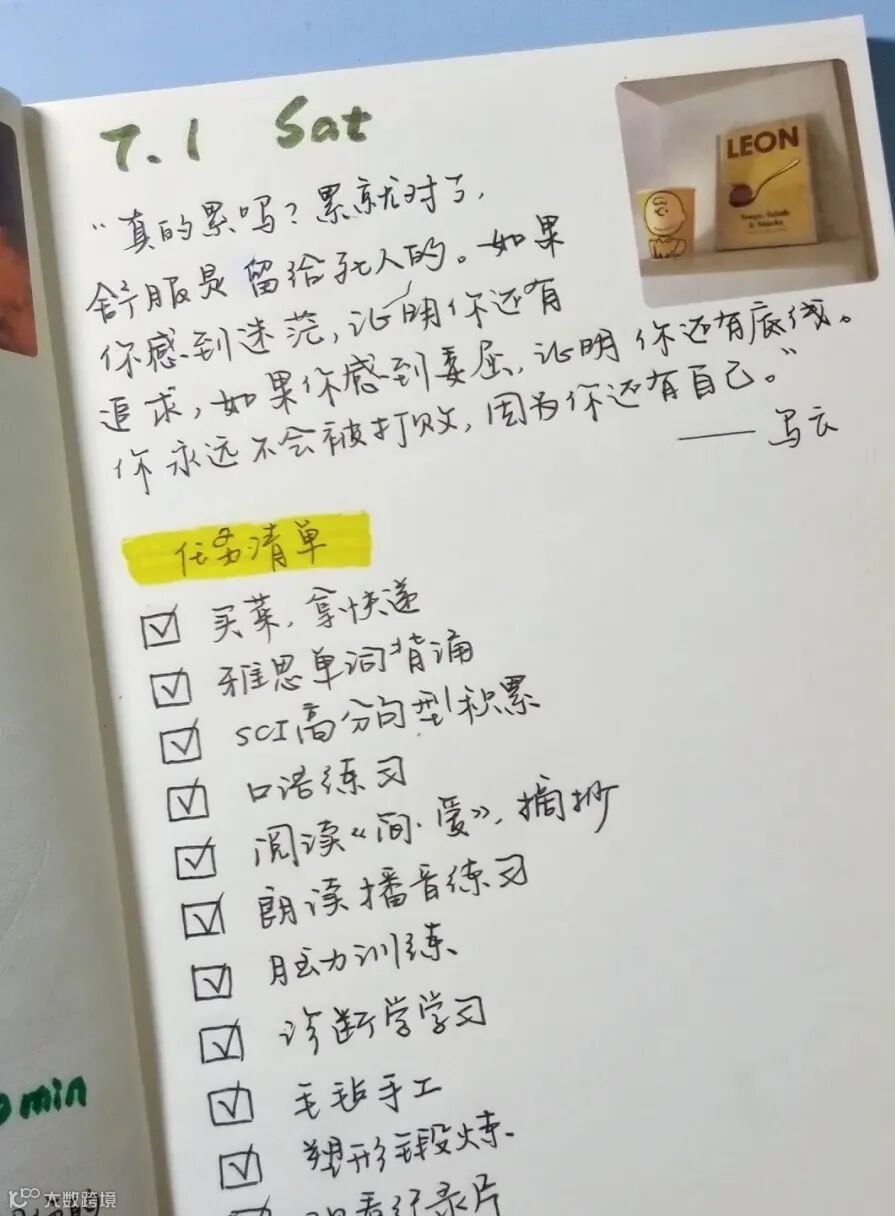 7.1 Sat
LEON
Soups, Salads
& Snacks
"真的累吗?累就对了,
舒服是留给死人的。如果
你感到迷茫,证明你还有
追求,如果你感到委屈,证明你还有底线。
你永远不会被打败,因为你还有自己。"
——马云
任务清单
买菜,拿快递
雅思单词背诵
SCI高分句型积累
口语练习
阅读《简·爱》,摘抄
朗读播音练习
脑力训练
诊断学学习
毛毡手工
塑形锻炼
观看纪录片
min
100 大数跨境